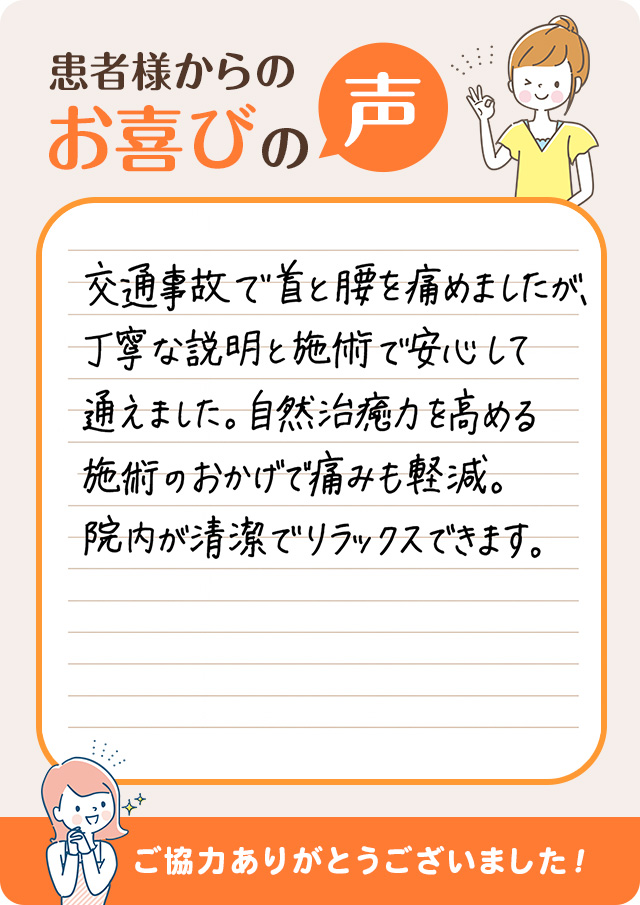 患者様からの
お喜びの声
交通事故で首と腰を痛めましたが、
丁寧な説明と施術で安心して
通えました。自然治癒力を高める
施術のおかげで痛みも軽減。
院内が清潔でリラックスできます。
ご協力ありがとうございました!